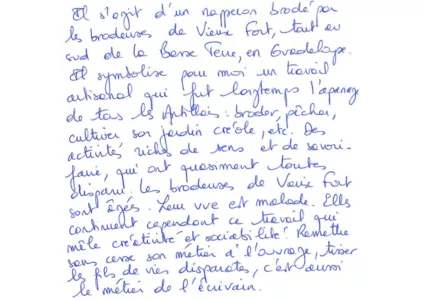 Il s'agit d'un napperon brodé par
les brodeuses de Vieux Fort, tout au
sud de la Basse Terre, en Guadeloupe.
Il symbolise pour moi un travail
artisanal qui fut longtemps l'apanage
de tous les Antillais : broder, pêcher,
cultiver son jardin créole, etc. Des
activités riches de sens et de savoir-
faire, qui ont quasiment toutes
disparu. Les brodeuses de Vieux Fort
sont âgées. Leur vue est malade. Elles
continuent cependant ce travail qui
mêle créativité et sociabilité ! Remettre
sans cesse son métier à l'ouvrage, tisser
les fils de vies disparates, c'est aussi
le métier de l'écrivain.